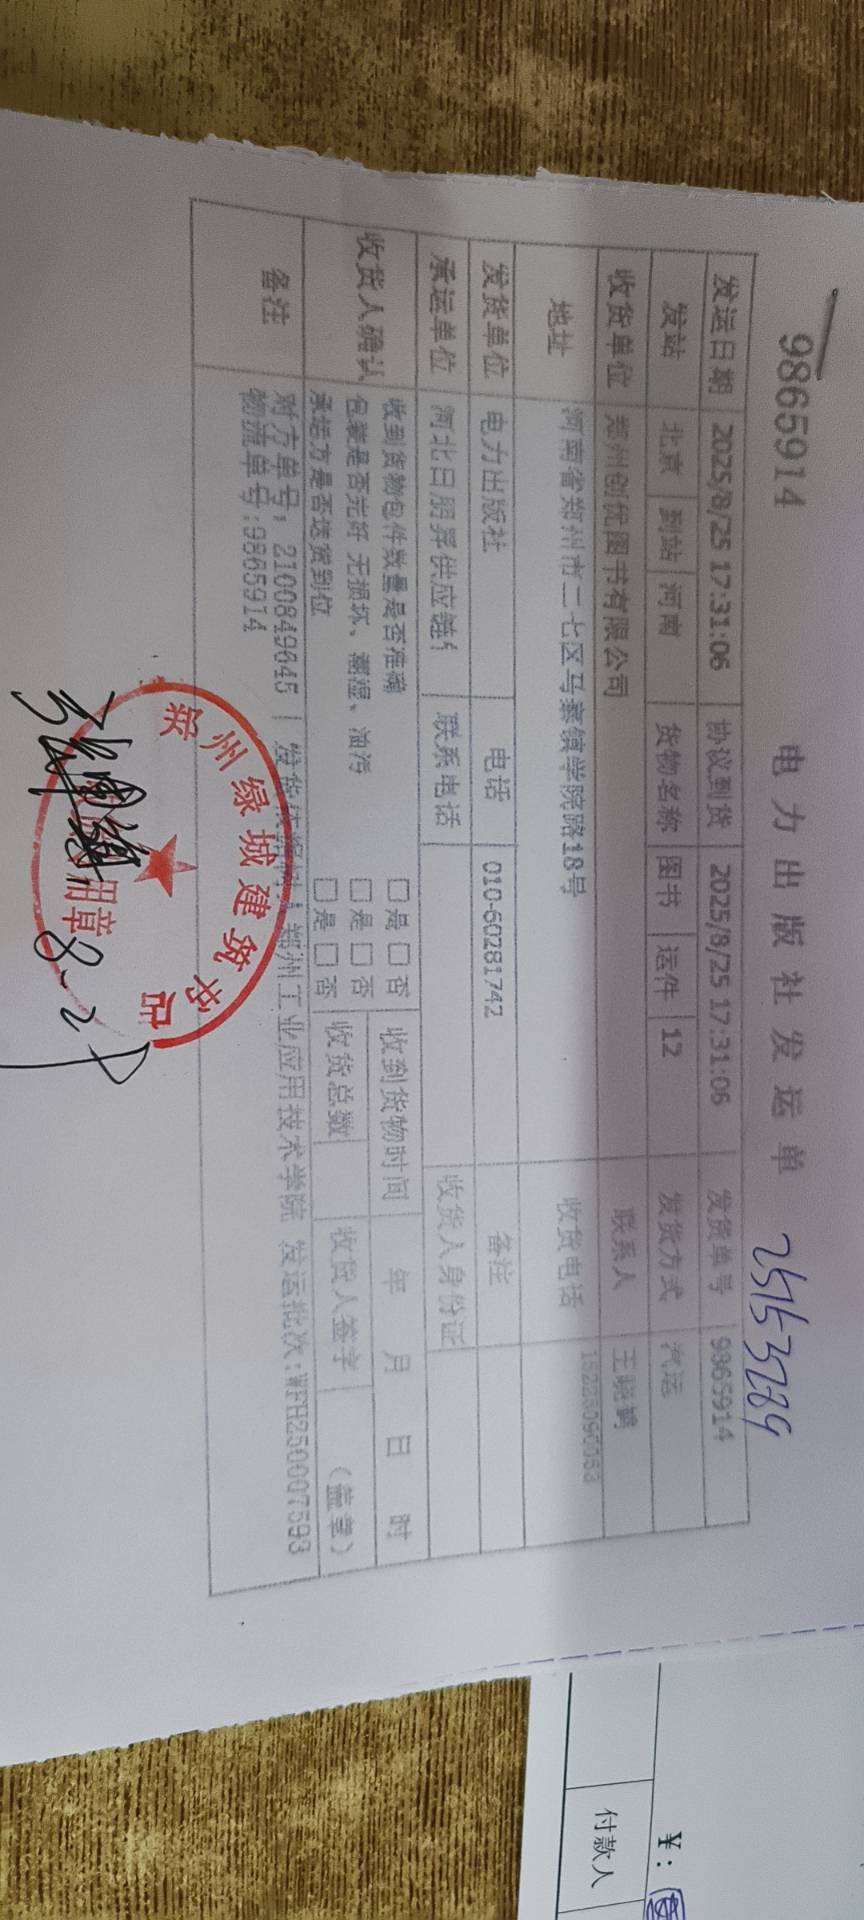 9865914 电力出版社发运单 25153289
发运日期 2025/8/25 17:31:06 协议到货 2025/8/25 17:31:06 发货单号 9865914
发站 北京 到站 河南 货物名称 图书 运件 12 发货方式 汽运
收货单位 郑州创优图书有限公司 联系人 王晓鹤
地址 河南省郑州市二七区马寨镇学院路18号 收货电话
发货单位 电力出版社 电话 010-60281742 备注
承运单位 河北日朋昇供应链 联系电话 收货人身份证
收货人确认 收到货物包件数量是否准确 □是 □否 收到货物时间 年 月 日 时
包装是否完好 无损坏、潮湿、油污 □是 □否 收货总数 收货人签字 (盖章)
承运方是否送货到位 □是 □否
备注 对方单号: 2100849645 | 郑州工业应用技术学院 发运批次:WFH250007593
物流单号:9865914
郑州绿城建筑书店
用章
8.27
¥:
付款人